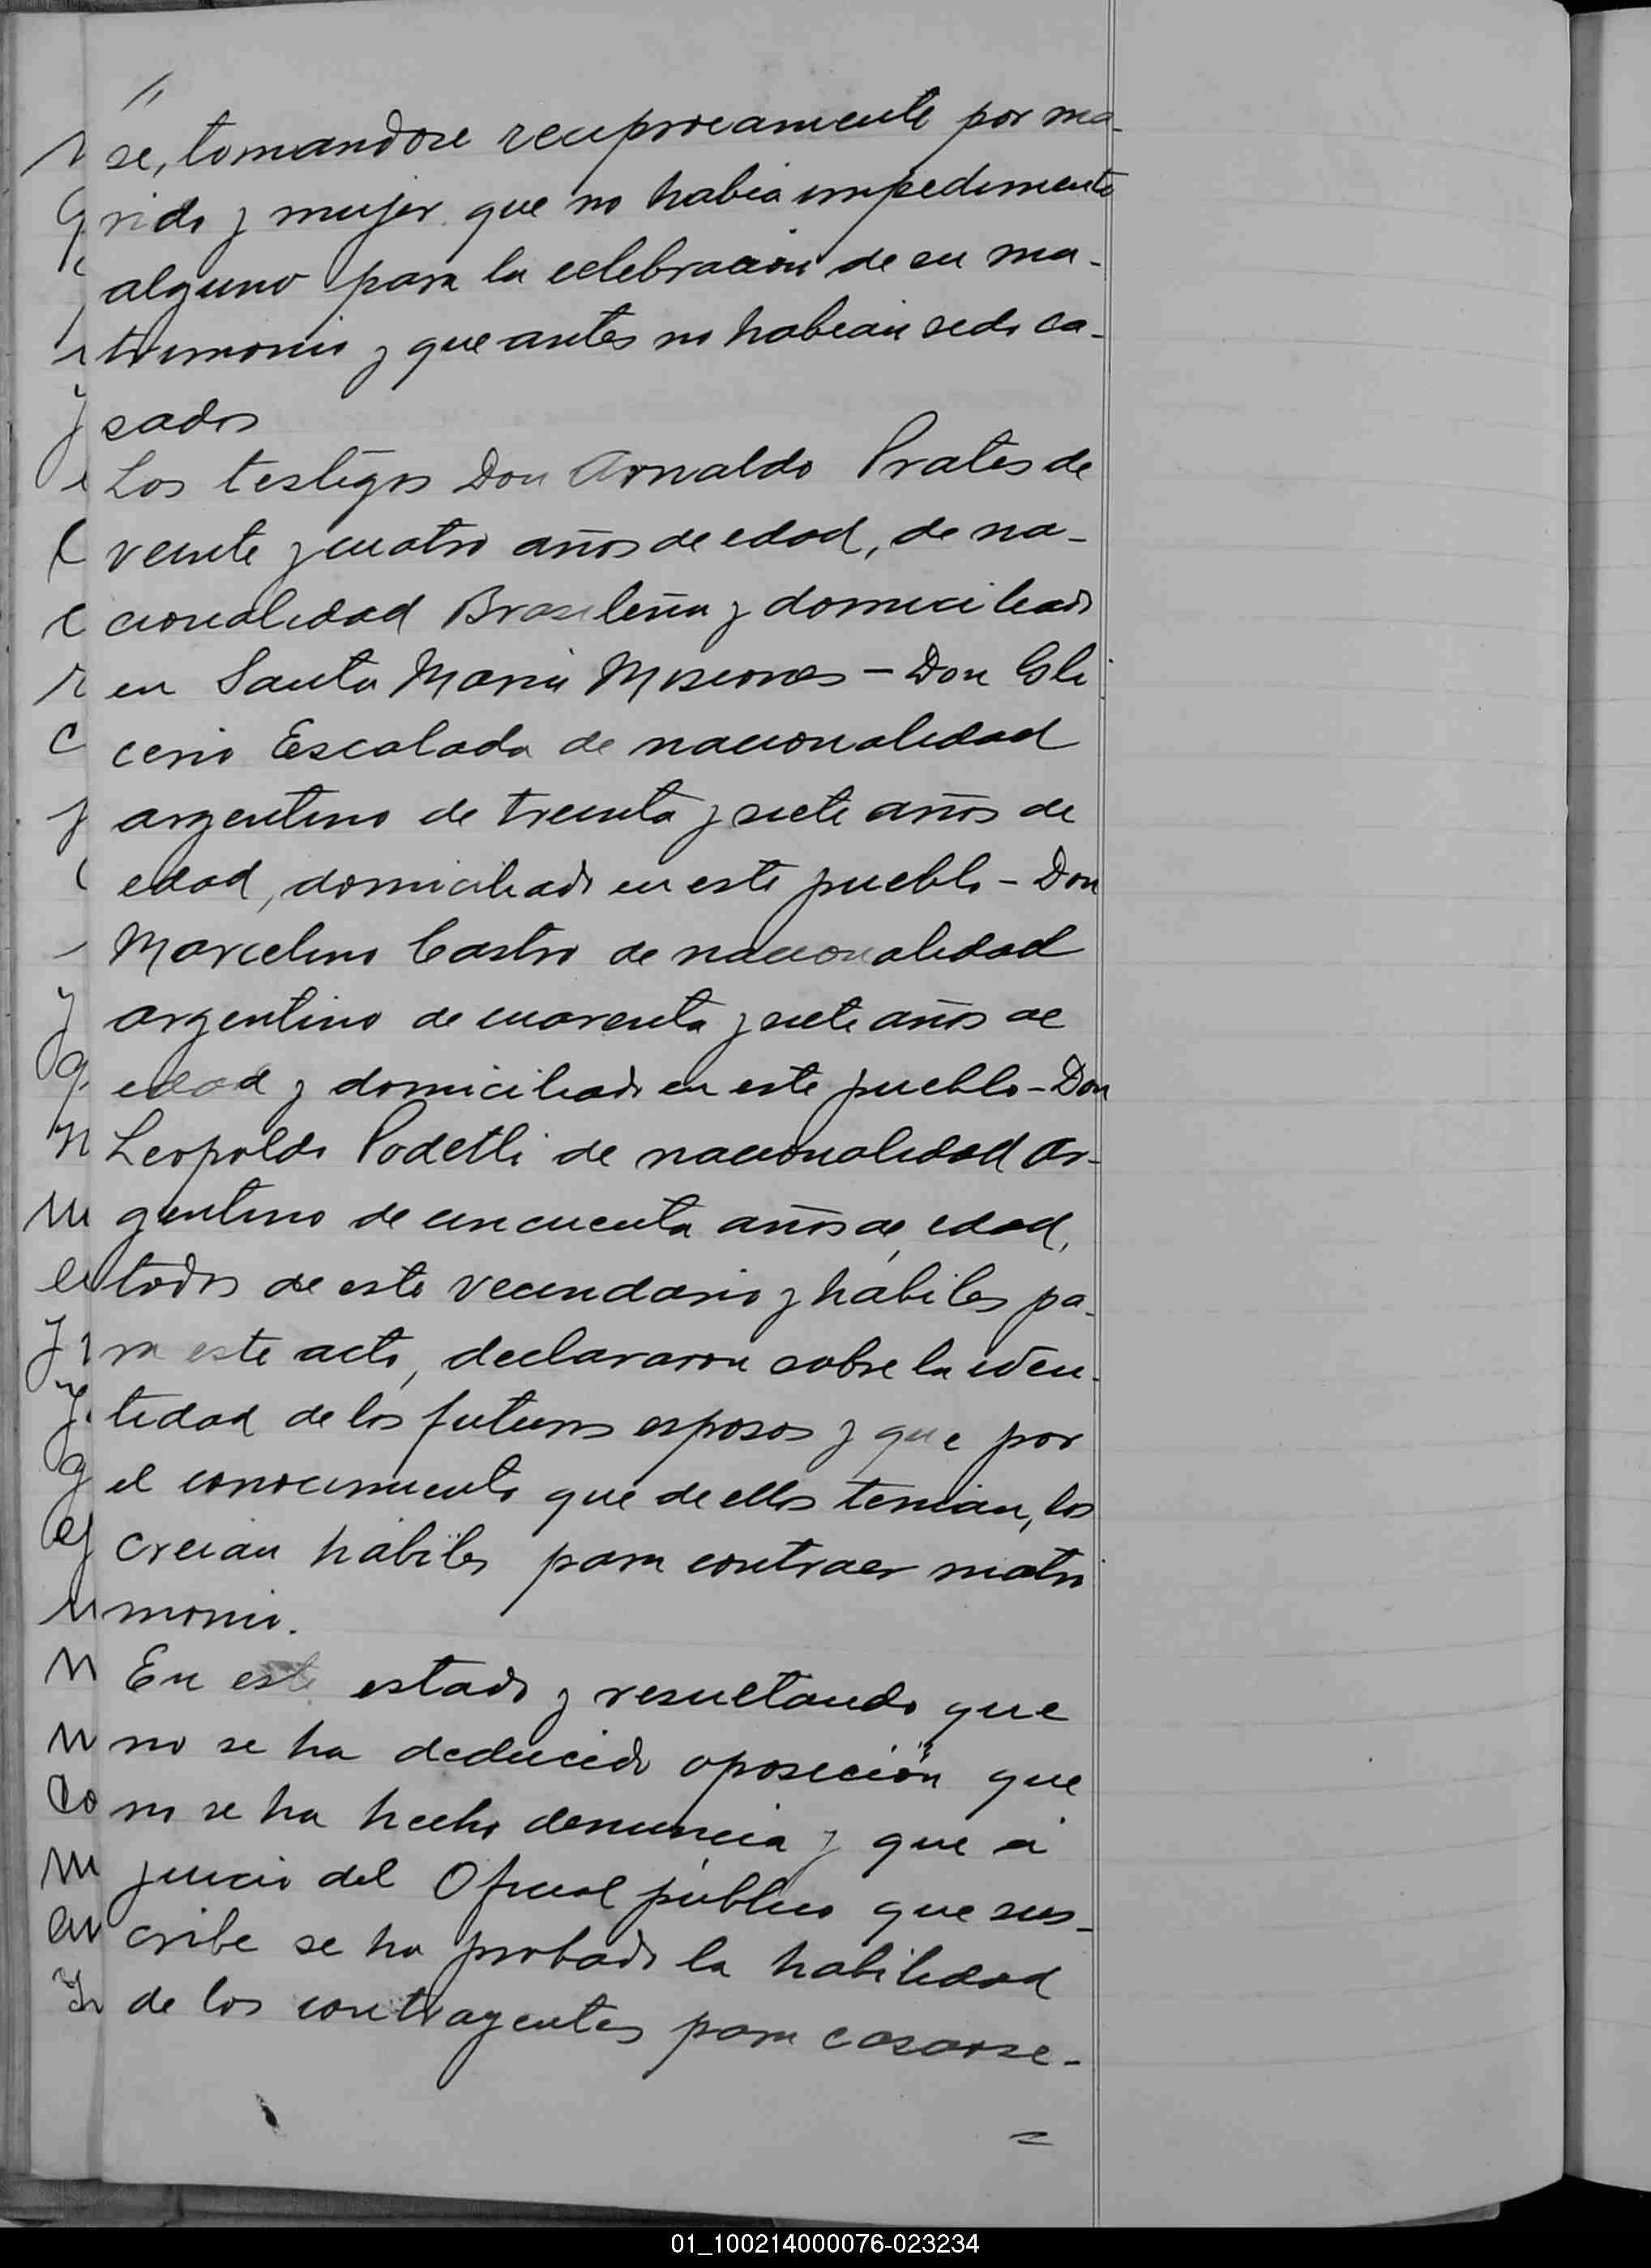 //
se, tomandose reciprocamente por ma-
rido y mujer que no habia impedimento
alguno para la celebracion de su ma-
trimonio y que antes no habian sido ca-
sados
Los testigos Don Arnaldo Prates de
veinte y cuatro años de edad, de na-
cionalidad Brasileña y domiciliado
en Santa Maria Misiones - Don Gli
cerio Escalada de nacionalidad
argentino de treinta y siete años de
edad, domiciliado en este pueblo - Don
Marcelino Castro de nacionalidad
argentino de cuarenta y siete años de
edad y domiciliado en este pueblo - Don
Leopoldo Podetti de nacionalidad ar-
gentino de cincuenta años de edad,
todos de este vecindario y hábiles pa-
ra este acto, declararon sobre la iden-
tidad de los futuros esposos y que por
el conocimiento que de ellos tenian, los
creian hábiles para contraer matri
monio.
En este estado y resultando que
no se ha deducido oposición que
no se ha hecho denuncia y que á
juicio del Oficial público que sus-
cribe se ha probado la habilidad
de los contrayentes para casarse -
=
01_100214000076-023234